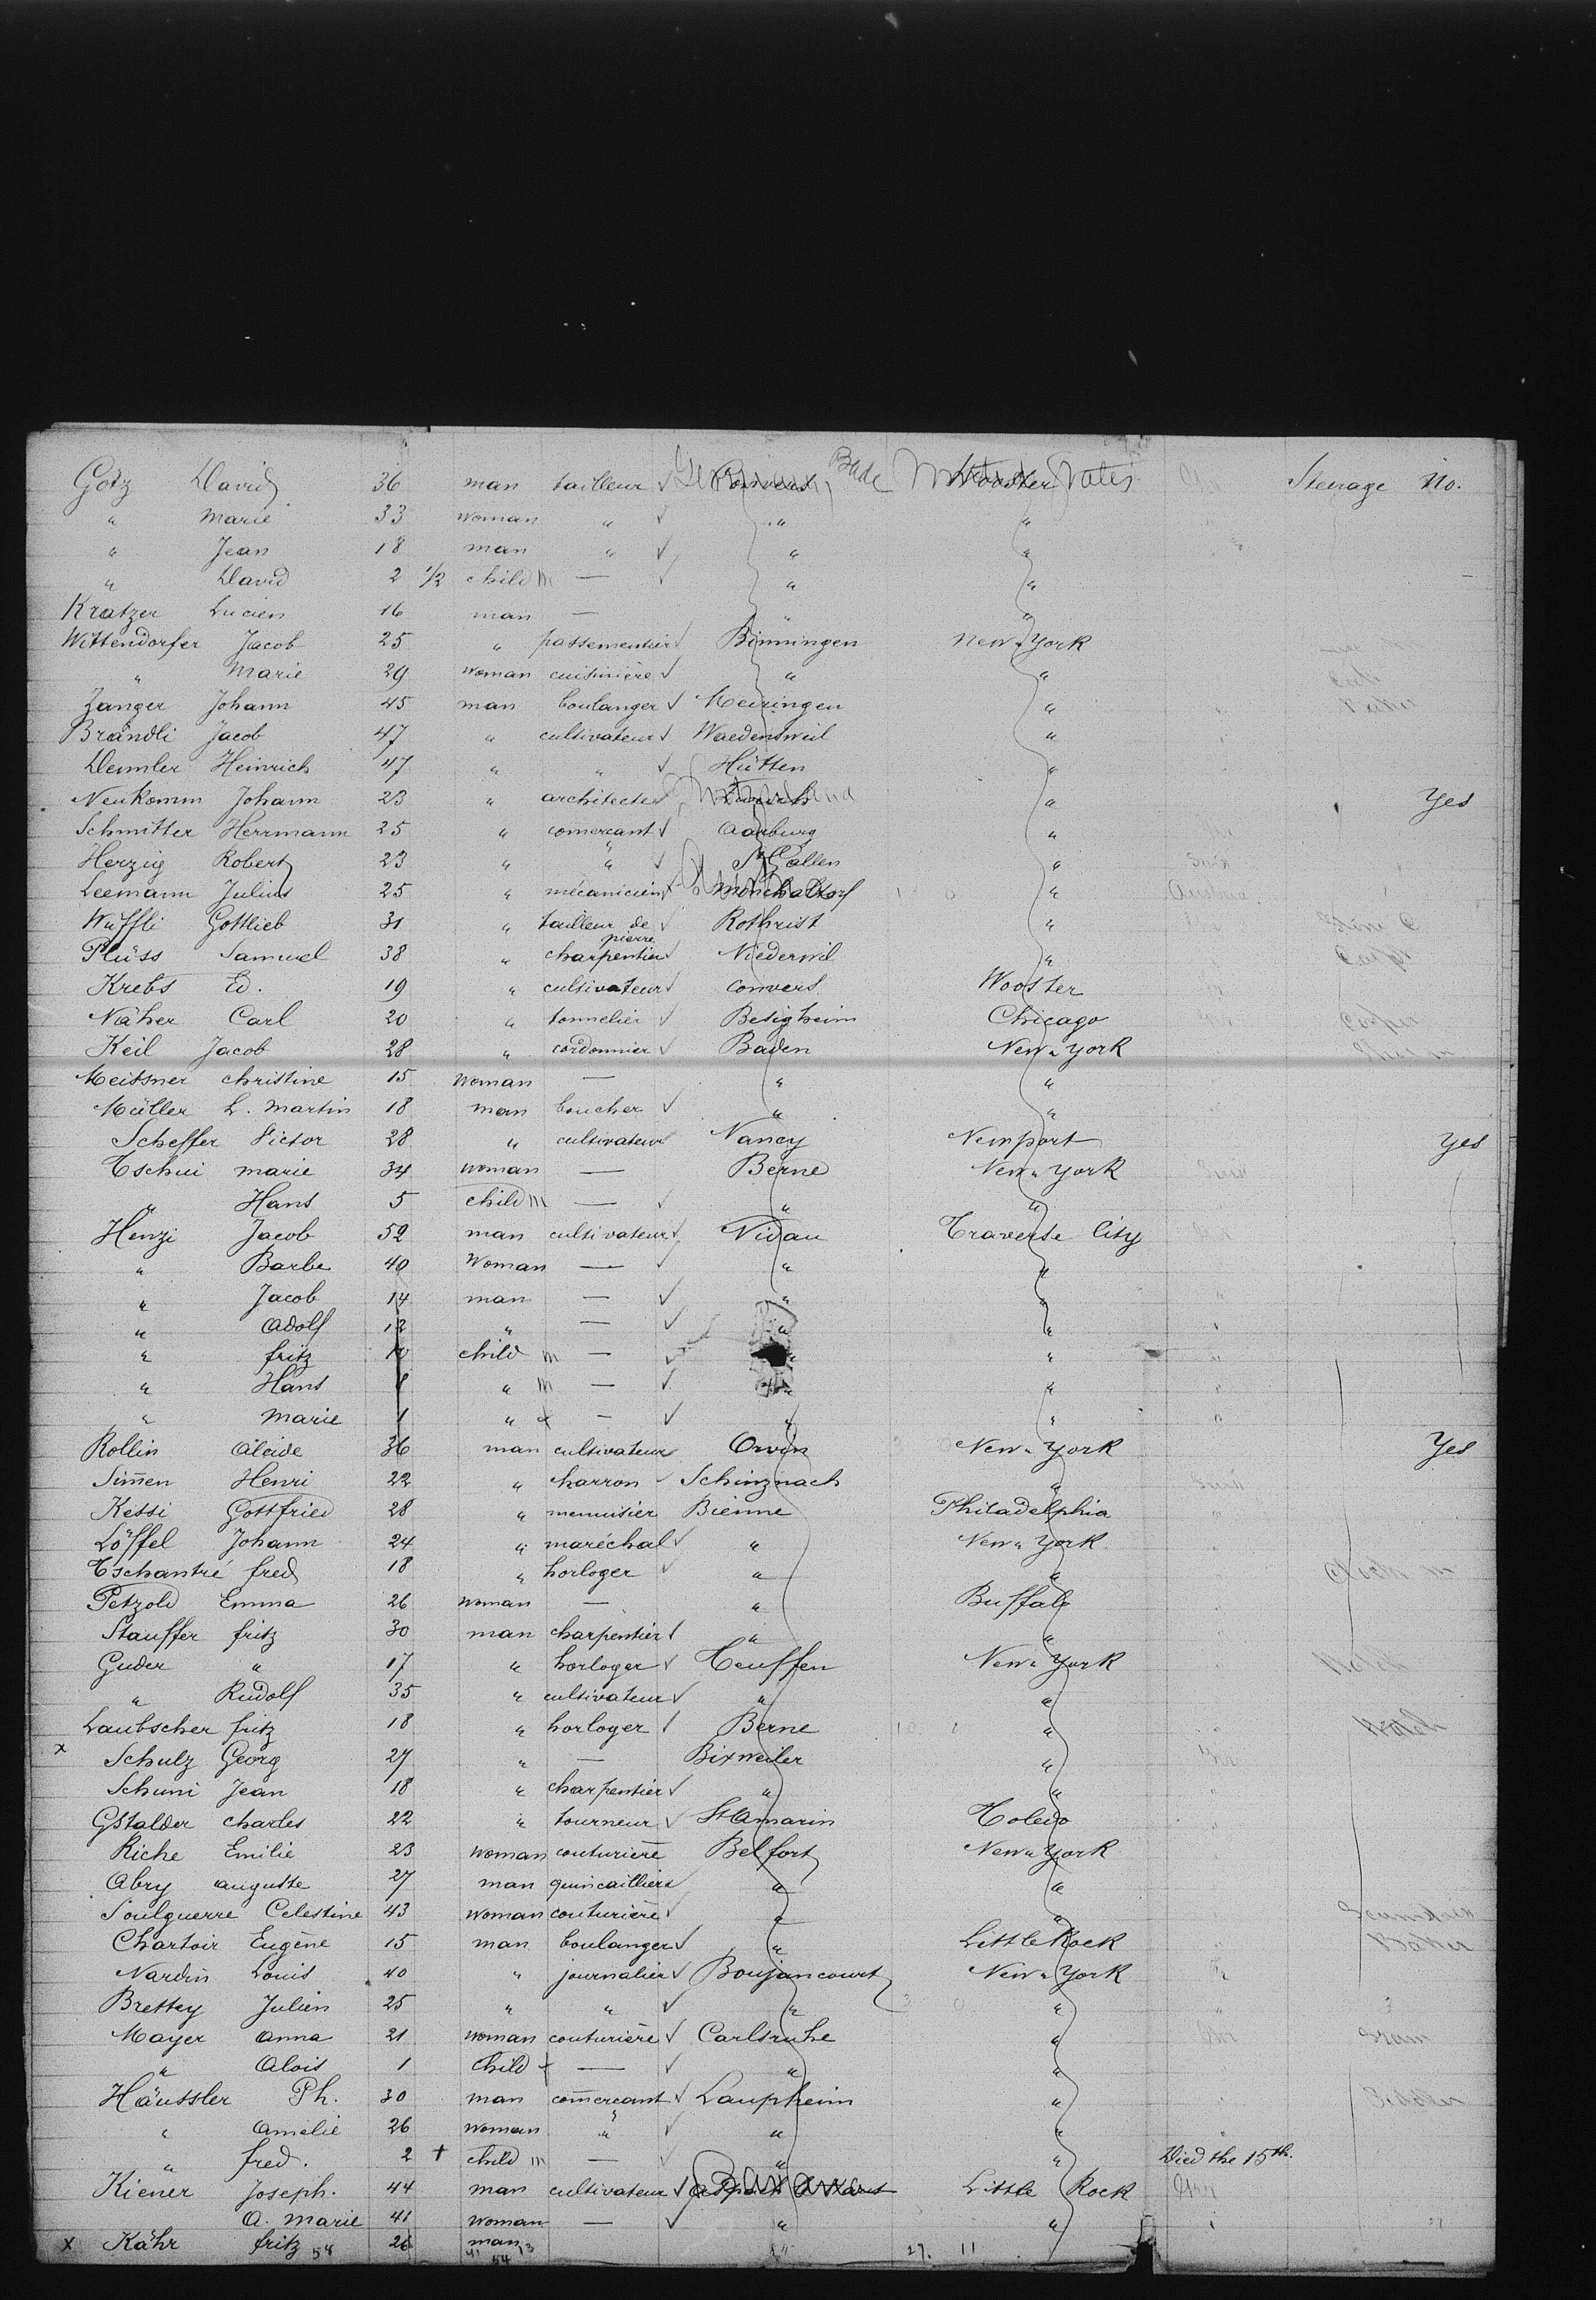 Götz David 36 man tailleur ✓ Germany, Bade Wooster Steerage No.
" Marie 33 woman " ✓ " "
" Jean 18 man " ✓ " "
" David 2 1/2 child m — ✓ " "
Kratzer Lucien 16 man — " "
Wittendorfer Jacob 25 " passementier ✓ Binningen New-York
" Marie 29 woman cuisinière ✓ " "
Zanger Johann 45 man boulanger ✓ Meiringen "
Brändli Jacob 47 " cultivateur ✓ Waedensweil "
Demler Heinrich 47 " " ✓ Hütten "
Neukomm Johann 23 " architecte ✓ " Yes
Schmitter Herrmann 25 " comercant ✓ Aarburg "
Herzig Robert 23 " " ✓ St Gallen "
Leemann Julius 25 " mécanicien ✓ Mönchaltorf " Austria
Wüffli Gottlieb 31 " tailleur de pierre ✓ Rothrist "
Plüss Samuel 38 " charpentier ✓ Niederwil "
Krebs Ed. 19 " cultivateur ✓ convers Wooster
Näher Carl 20 " tonnelier ✓ Besigheim Chicago
Keil Jacob 28 " cordonnier ✓ Baden New-York
Meissner christine 15 woman — " "
Müller L. Martin 18 man boucher ✓ " "
Scheffer Victor 28 " cultivateur Nancy Newport Yes
Tschui marie 34 woman — Berne New-York
" Hans 5 child m — ✓ " "
Henzi Jacob 52 man cultivateur ✓ Nidau Traverse City
" Barbe 40 Woman — ✓ " "
" Jacob 14 man — ✓ " "
" Adolf 12 " — ✓ " "
" fritz 10 child m — ✓ " "
" Hans 8 " m — ✓ " "
" Marie 1 " — ✓ " "
Rollin Alcide 36 man cultivateur Orvin New-York Yes
Simen Henri 22 " charron Schinznach "
Kessi Gottfried 28 " menuisier Bienne Philadelphia
Löffel Johann 24 " maréchal ✓ " New-York
Tschantré fred 18 " horloger ✓ " "
Petzold Emma 26 woman — " Buffalo
Stauffer fritz 30 man charpentier ✓ " "
Guder " 17 " horloger ✓ Teuffen New-York
" Rudolf 35 " cultivateur ✓ " "
Laubscher fritz 18 " horloger Berne " Watch
x Schulz Georg 27 " — Bixweiler "
Schuni Jean 18 " charpentier ✓ " "
Gstalder charles 22 " tourneur ✓ St Amarin Toledo
Riche Emilie 23 woman couturière Belfort New-York
Abry auguste 27 man quincaillier ✓ " "
Soulguerre Celestine 43 woman couturière ✓ " "
Chartoir Eugène 15 man boulanger ✓ " Little Rock Baker
Nardin Louis 40 " journalier ✓ Boujancourt New-York
Brettey Julien 25 " " ✓ " "
Mayer Anna 21 woman couturière ✓ Carlsruhe "
" Alois 1 child — ✓ " "
Häussler Ph. 30 man comercant ✓ Laupheim "
" Amelie 26 woman " ✓ " "
" fred. 2 + child m — ✓ " " Died the 15th.
Kiener Joseph. 44 man cultivateur ✓ Bavaria Little Rock
A. Marie 41 woman — ✓ " "
x Kähr fritz 26 man
58 41 13 54 27. 11